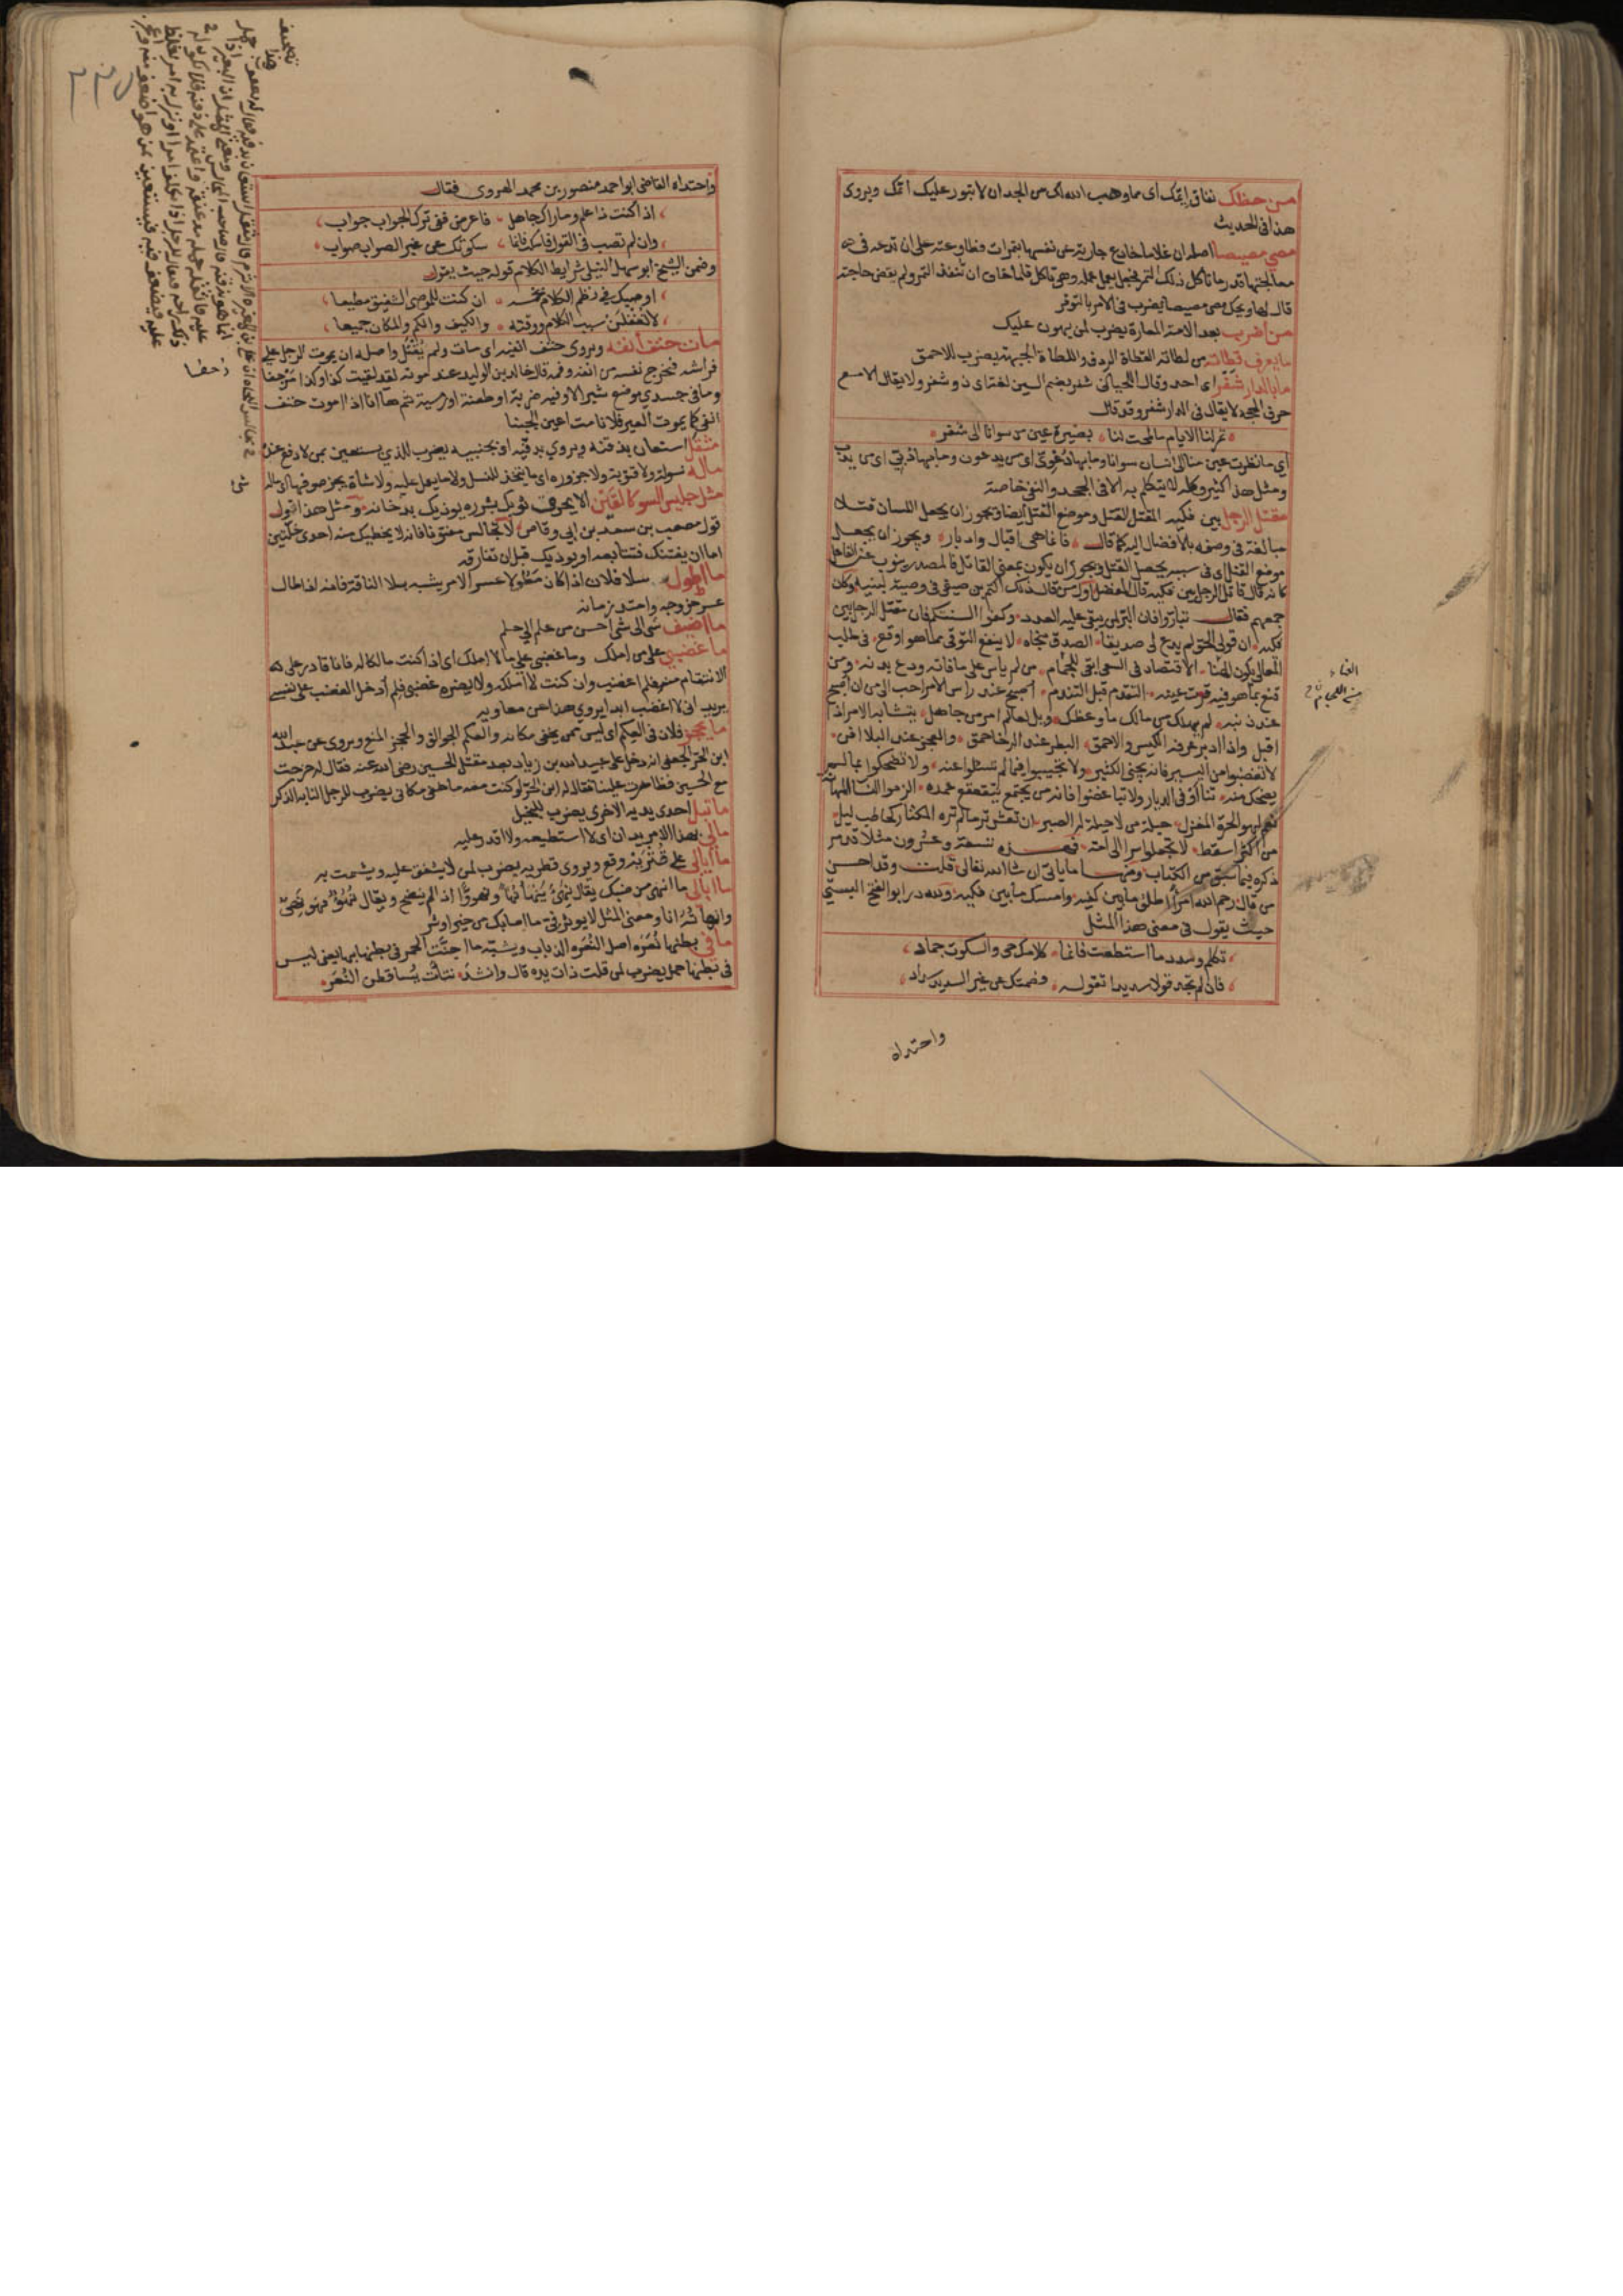 من حظك نفاق ايمك اى مما وهب الله لك من الجد ان لا تبور عليك ايمك ويروى
هذا فى الحديث
مصى مصيصا اصله ان غلاما خادع جارية عن نفسها بتمرات فطاوعته على ان تدعه فى
معالجتها قدر ما تاكل ذلك التمر فجعل يعمل عمله وهى تاكل فلما خاف ان تنفد التمر ولم يقض حاجته
قال لها ويحك مصى مصيصا يضرب فى الامر بالتوفر
من اضرب بعد الامة المعارة يضرب لمن يهون عليك
ما يعرف قطاته من لطاته القطاة الردف واللطاة الجبهة يضرب للاحمق
ما بالدار شفر اى احد وقال اللحيانى شفر بضم الشين لغة اى ذو شفر ولا يقال الا مع
حرف الجحد لا يقال فى الدار شفر وقد قال
تمر لنا الايام ما لمحت لنا بصيرة عين من سوانا الى شفر
اى ما نظرت عين منا الى انسان سوانا وما بها دعوى اى من يدعو وما بها دبى اى من يدب
ومثل هذا كثير وكله لا يتكلم به الا فى الجحد والنفى خاصة
مقتل الرجل بين فكيه المقتل القتل وموضع القتل ايضا ويجوز ان يجعل اللسان قتلا
مبالغة فى وصفه بالافضال اليه كما قال فانما هى اقبال وادبار ويجوز ان يجعل
موضع القتل اى فى سببه يحصل القتل ويجوز ان يكون بمعنى القاتل فالمصدر ينوب عن الفاعل
كانه قال قاتل الرجل بين فكيه قال المفضل اول من قال ذلك اكثم بن صيفى فى وصية لبنيه وكان
جمعهم فقال تباروا فان البر يبقى عليه العدد وكفوا السنتكم فان مقتل الرجل بين
فكيه ان قول الحق لم يدع لى صديقا الصدق منجاة لا ينفع التوقى مما هو واقع فى طلب
المعالى يكون العناء الاقتصاد فى السعى ابقى للجمام من لم ياس على ما فاته ودع بدنه ومن
قنع بما هو فيه قرت عينه التقدم قبل التندم اصبح عند راس الامر احب الى من ان اصبح
عند ذنبه لم يهلك من مالك ما وعظك ويل لعالم امر من جاهل يتشابه الامر اذا
اقبل واذا ادبر عرفه الكيس والاحمق البطر عند الرخا حمق والعجز عند البلا افن
لا تغضبوا من اليسير فانه يجنى الكثير ولا تجيبوا فيما لم تسئلوا عنه ولا تضحكوا مما لم
يضحك منه تناأوا فى الديار ولا تباغضوا فانه من يجتمع يتقعقع عمده الزموا النسا المهانة
نعم لهو الحرة المغزل حيلة من لا حيلة له الصبر ان تعش تر ما لم تره المكثار كحاطب ليل
من اكثر اسقط لا تجعلوا سرا الى امة فهذه تسعة وعشرون مثلا قد مر
ذكره فيما سبق من الكتاب ومنها ما ياتى ان شا الله تعالى قلت وقد احسن
من قال رحم الله امرأ اطلق ما بين كفيه وامسك ما بين فكيه ولله در ابو الفتح البستى
حيث يقول فى معنى هذا المثل
تكلم وسدد ما استطعت فانما كلامك حى والسكوت جماد
فان لم تجد قولا سديدا تقوله فصمتك عن غير السديد سداد
واحتداه
واحتداه القاضى ابو احمد منصور بن محمد الهروى فقال
اذا كنت ذا علم وماراك جاهل فاعرض ففى ترك الجواب جواب
وان لم تصب فى القول فاسكت فانما سكوتك عن غير الصواب صواب
وضمن الشيخ ابو سهل النيلى شرايط الكلام قوله حيث يقول
اوصيك فى نظم الكلام بخمسة ان كنت للموصى الشفيق مطيعا
لا تغفلن سبب الكلام ووقته والكيف والكم والمكان جميعا
مات حتف انفه ويروى حتف انفيه اى مات ولم يقتل واصله ان يموت الرجل على
فراشه فتخرج نفسه من انفه وفمه قال خالد بن الوليد عند موته لقد لقيت كذا وكذا زحفا
وما فى جسدى موضع شبر الا وفيه ضربة او طعنة او رمية ثم ها انا اذا اموت حتف
انفى كما يموت العير فلا نامت اعين الجبنا
مثقل استعان بذقنه ويروى بدفيه اى بجنبيه يضرب للذى يستعين بمن لا دفع عنده
ماله نسولة ولا قتوبة ولا جزوزة اى ما يتخذ للنسل ولا ما يعمل عليه ولا شاة يجز صوفها اى ماله شى
مثل جليس السو كالقين الا يحرق ثوبك بشرره يوذيك بدخانه ومثل هذا القول
قول مصعب بن سعد بن ابى وقاص لا تجالس مفتونا فانه لا يخطيك منه احدى خلتين
اما ان يفتنك فتتابعه او يوذيك قبل ان تفارقه
ما اطول سلا فلان اذا كان مطولا عسر الامر يشبه بسلا الناقة فانه اذا طال
عسر خروجه وامتد زمانه
ما اضيف شى الى شى احسن من علم الى حلم
ما غضبى على من املك وما غضبى على ما لا املك اى اذا كنت مالكا له فانا قادر على
الانتقام منه فلم اغضب وان كنت لا املكه ولا يضره غضبى فلم ادخل الغضب على نفسى
يريد انى لا اغضب ابدا يروى هذا عن معاوية
ما يحجز فلان فى العكم اى ليس ممن يخفى مكانه والعكم الجوالق والحجز المنع ويروى عن عبد الله
ابن الحر الجعفى انه دخل على عبيد الله بن زياد بعد مقتل الحسين رضى الله عنه فقال له خرجت
مع الحسين فظاهرت علينا فقال له ابن الحر لو كنت معه ما خفى مكانى يضرب للرجل النابه الذكر
ما تبل احدى يديه الاخرى يضرب للبخيل
مالى بهذا الامر يدان اى لا استطيعه ولا اقدر عليه
ما ابالى على اى قتريه وقع ويروى قطريه يضرب لمن لا يشفق عليه ويشمت به
ما ابالى ما انهئ من ضبك يقال نهئ ينهأ نهأ ونهوءا اذا لم ينضج ويقال نهؤ فهو نهئ
وانهأته انا ومعنى المثل لا يوثر فى ما اصابك من خير او شر
ما فى بطنها نعرة اصل النعرة الذباب ويشبه ما اجنت الحمر فى بطنها بها يعنى ليس
فى بطنها حمل يضرب لمن قلت ذات يده قال وانشد نتأت يساقطن النعر